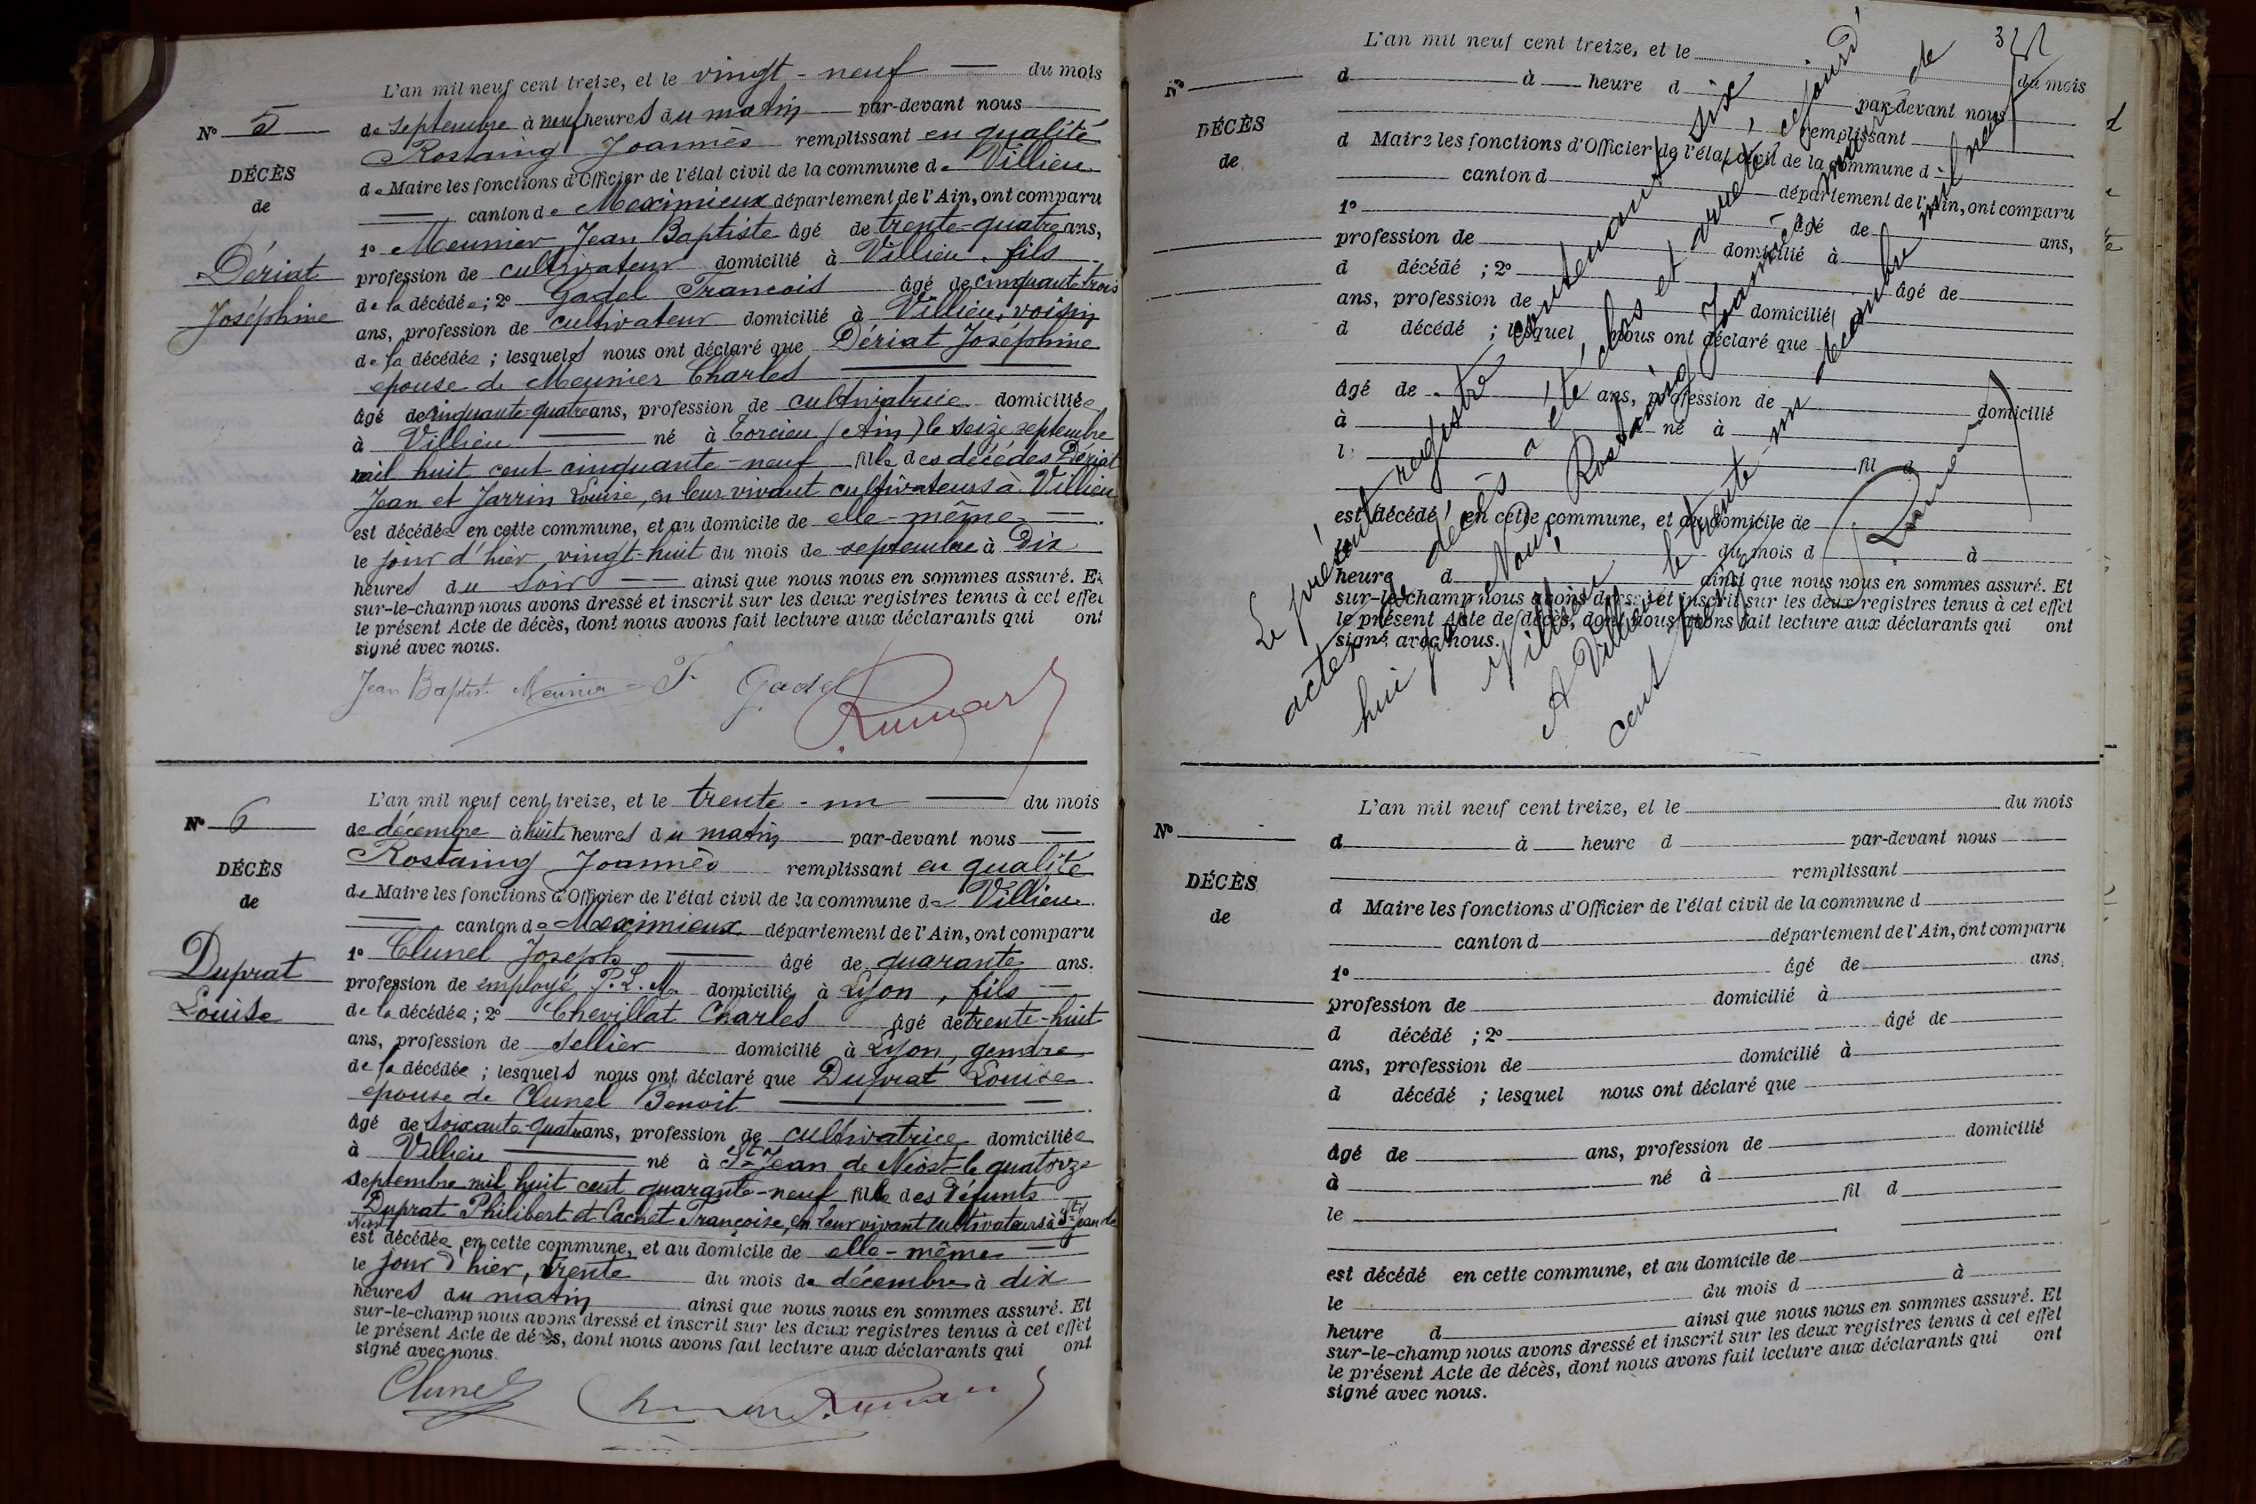 L'an mil neuf cent treize, et le vingt-neuf du mois
No 5
de septembre à neuf heures du matin par-devant nous
Rostaing Joannès remplissant en qualité
DÉCÈS
de Maire les fonctions d'Officier de l'état civil de la commune de Villieu
de
canton de Meximieux département de l'Ain, ont comparu
1o Meunier Jean Baptiste âgé de trente-quatre ans,
Dériat
profession de cultivateur domicilié à Villieu, fils
Joséphine
de la décédée ; 2o Gadel François âgé de cinquante trois
ans, profession de cultivateur domicilié à Villieu, voisin
de la décédée ; lesquels nous ont déclaré que Dériat Joséphine
épouse de Meunier Charles
âgé de cinquante-quatre ans, profession de cultivatrice domiciliée
à Villieu né à Torcieu (Ain) le seize septembre
mil huit cent cinquante-neuf fille des décédés Dériat
Jean et Jarrin Louise, en leur vivant cultivateurs à Villieu
est décédée en cette commune, et au domicile de elle-même
le jour d'hier vingt-huit du mois de septembre à Dix
heures du soir ainsi que nous nous en sommes assuré. Et
sur-le-champ nous avons dressé et inscrit sur les deux registres tenus à cet effet
le présent Acte de décès, dont nous avons fait lecture aux déclarants qui ont
signé avec nous.
Jean Baptiste Meunier F. Gadel
L'an mil neuf cent treize, et le trente-un du mois
No 6
de décembre à huit heures du matin par-devant nous
Rostaing Joannès remplissant en qualité
DÉCÈS
de Maire les fonctions d'Officier de l'état civil de la commune de Villieu
de
canton de Meximieux département de l'Ain, ont comparu
Duprat
1o Clunel Joseph âgé de quarante ans.
profession de employé P.L.M. domicilié à Lyon, fils
Louise
de la décédée ; 2o Chevillat Charles âgé de trente-huit
ans, profession de sellier domicilié à Lyon, gendre
de la décédée ; lesquels nous ont déclaré que Duprat Louise
épouse de Clunel Benoit
âgé de soixante-quatre ans, profession de cultivatrice domiciliée
à Villieu né à St Jean de Niost le quatorze
septembre mil huit cent quarante-neuf fille des défunts
Duprat Philibert et Cachet Françoise, en leur vivant cultivateurs à St Jean de
Niost
est décédée en cette commune, et au domicile de elle-même
le jour d'hier, trente du mois de décembre à dix
heures du matin ainsi que nous nous en sommes assuré. Et
sur-le-champ nous avons dressé et inscrit sur les deux registres tenus à cet effet
le présent Acte de décès, dont nous avons fait lecture aux déclarants qui ont
signé avec nous.
Clunel
L'an mil neuf cent treize, et le du mois
No
d à heure d par-devant nous
remplissant
DÉCÈS
d Maire les fonctions d'Officier de l'état civil de la commune d
de
canton d département de l'Ain, ont comparu
1o âgé de ans,
profession de domicilié à
d décédé ; 2o âgé de
ans, profession de domicilié
d décédé ; lesquel nous ont déclaré que
âgé de ans, profession de domicilié
à né à
l fil d
est décédé en cette commune, et au domicile de
le du mois d à
heure d ainsi que nous nous en sommes assuré. Et
sur-le-champ nous avons dressé et inscrit sur les deux registres tenus à cet effet
le présent Acte de décès, dont nous avons fait lecture aux déclarants qui ont
signé avec nous.
Le présent registre contenant six
actes de décès a été clos et arrêté, cejourd'
hui par Nous, Rostaing Joannès maire de
Villieu
A Villieu le trente-un décembre mil neuf
cent treize
L'an mil neuf cent treize, et le du mois
No
d à heure d par-devant nous
remplissant
DÉCÈS
d Maire les fonctions d'Officier de l'état civil de la commune d
de
canton d département de l'Ain, ont comparu
1o âgé de ans,
profession de domicilié à
d décédé ; 2o âgé de
ans, profession de domicilié à
d décédé ; lesquel nous ont déclaré que
âgé de ans, profession de domicilié
à né à
le fil d
est décédé en cette commune, et au domicile de
le du mois d à
heure d ainsi que nous nous en sommes assuré. Et
sur-le-champ nous avons dressé et inscrit sur les deux registres tenus à cet effet
le présent Acte de décès, dont nous avons fait lecture aux déclarants qui ont
signé avec nous.